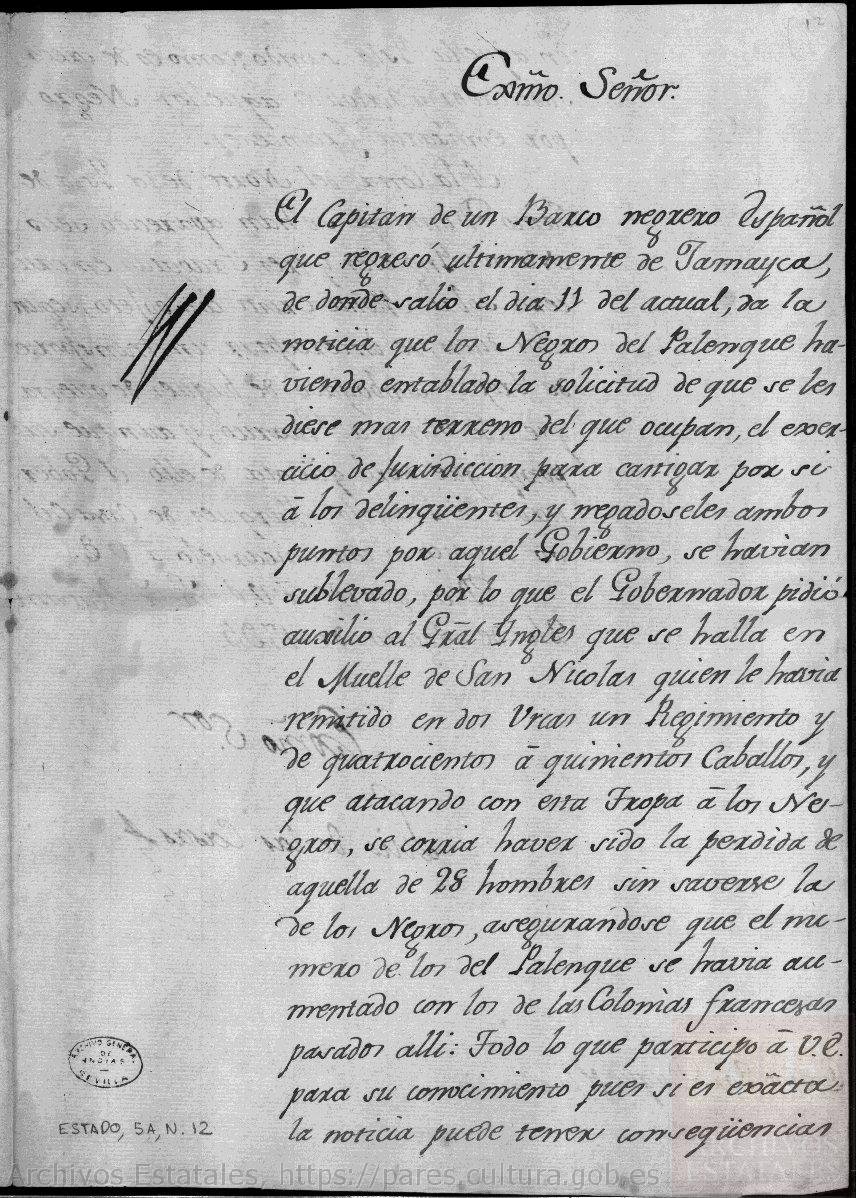 12
Exmo. Señor.
El Capitan de un Barco negrero Español
que regresó ultimamente de Jamayca,
de donde salio el dia 11 del actual, da la
noticia que los Negros del Palenque ha-
viendo entablado la solicitud de que se les
diese mas terreno del que ocupan, el exer-
cicio de Jurisdiccion para castigar por si
â los delinqüentes, y negadoseles ambos
puntos por aquel Gobierno, se havian
sublevado, por lo que el Gobernador pidió
auxilio al Grãl Yngles que se halla en
el Muelle de San Nicolas quien le havia
remitido en dos Urcas un Regimiento y
de quatrocientos â quinientos Caballos, y
que atacando con esta Tropa â los Ne-
gros, se corria haver sido la perdida de
aquella de 28 hombres sin saverse la
de los Negros, asegurandose que el nu-
mero de los del Palenque se havia au-
mentado con los de las Colonias francesas
pasados alli: Todo lo que participo â V.E.
para su conocimiento pues si es exâcta
la noticia puede tener conseqüencias
ARCHIVO GENERAL
DE
INDIAS
SEVILLA
ESTADO, 5A, N. 12
Archivos Estatales, https://pares.cultura.gob.es
ARCHIVOS
ESTATALES